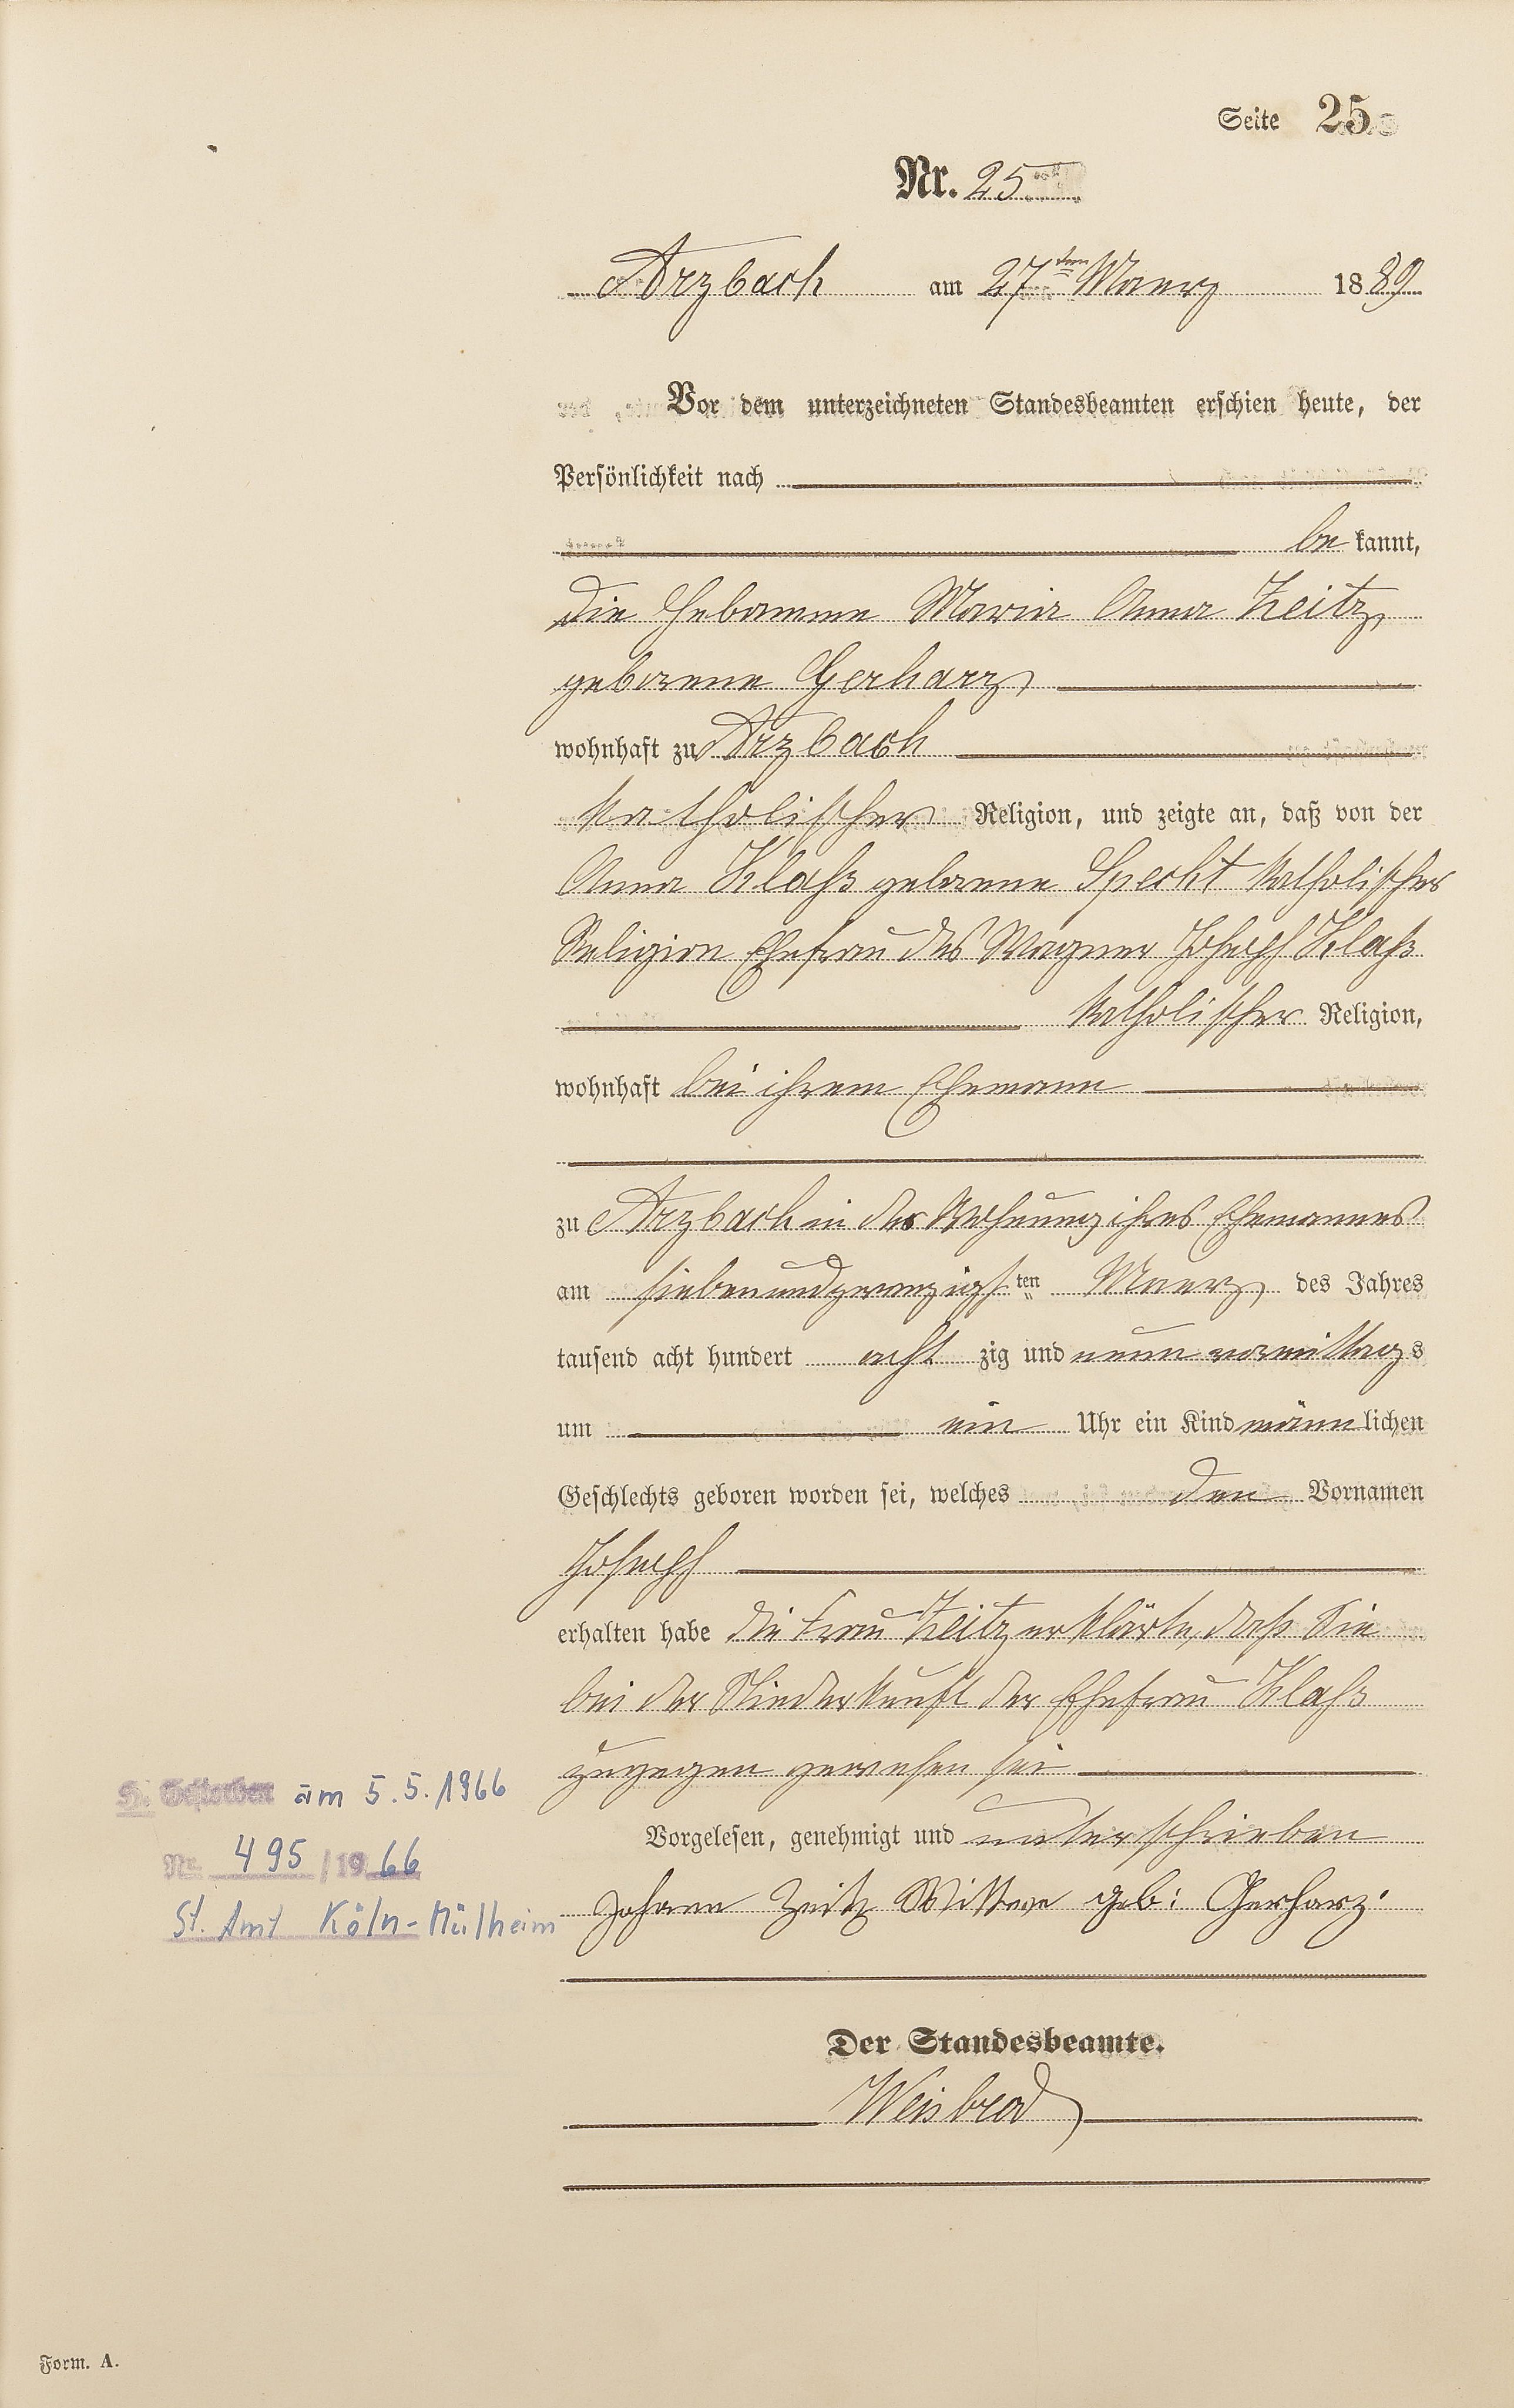 Seite 25.
Nr. 25
Arzbach am 27ten Maerz 1889
Vor dem unterzeichneten Standesbeamten erschien heute, der
Persönlichkeit nach
be kannt,
die Hebamme Maria Anna Zeitz,
geborene Gerharz
wohnhaft zu Arzbach
katholischer Religion, und zeigte an, daß von der
Anna Klaß geborene Specht katholischer
Religion Ehefrau des Wagner Joseph Klaß
katholischer Religion,
wohnhaft bei ihrem Ehemann
zu Arzbach in der Wohnung ihres Ehemannes
am siebenundzwanzigsten Maerz des Jahres
tausend acht hundert acht zig und neun vormittags
um ein Uhr ein Kind männlichen
Geschlechts geboren worden sei, welches den Vornamen
Joseph
erhalten habe die Frau Zeitz erklärte, daß Sie
bei der Niederkunft der Ehefrau Klaß
zugegen gewesen sei
Vorgelesen, genehmigt und unterschrieben
Johann Zeitz Wittwe geb: Gerharz
Der Standesbeamte.
Weisbrod
Gestorben am 5.5.1966
Nr. 495/1966
St. Amt Köln-Mülheim
Form. A.